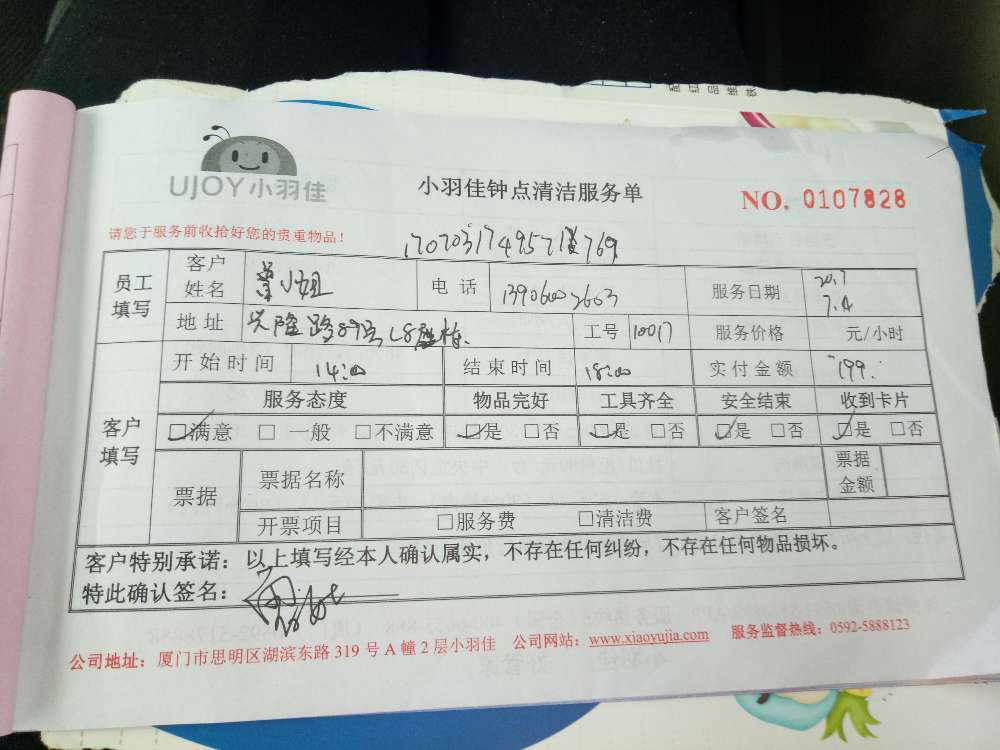 UJOY小羽佳
小羽佳钟点清洁服务单
NO. 0107828
请您于服务前收拾好您的贵重物品!
员工填写 客户姓名 小姐 电话 服务日期 7.4
地址 兴隆路89号 工号 10017 服务价格 元/小时
客户填写 开始时间 14:00 结束时间 18:00 实付金额 199.
服务态度 物品完好 工具齐全 安全结束 收到卡片
☑满意 □ 一般 □不满意 ☑是 □否 ☑是 □否 ☑是 □否 ☑是 □否
票据 票据名称 票据金额
开票项目 □服务费 □清洁费 客户签名
客户特别承诺：以上填写经本人确认属实，不存在任何纠纷，不存在任何物品损坏。
特此确认签名：
公司地址：厦门市思明区湖滨东路 319 号 A 幢 2 层小羽佳 公司网站：www.xiaoyujia.com 服务监督热线：0592-5888123